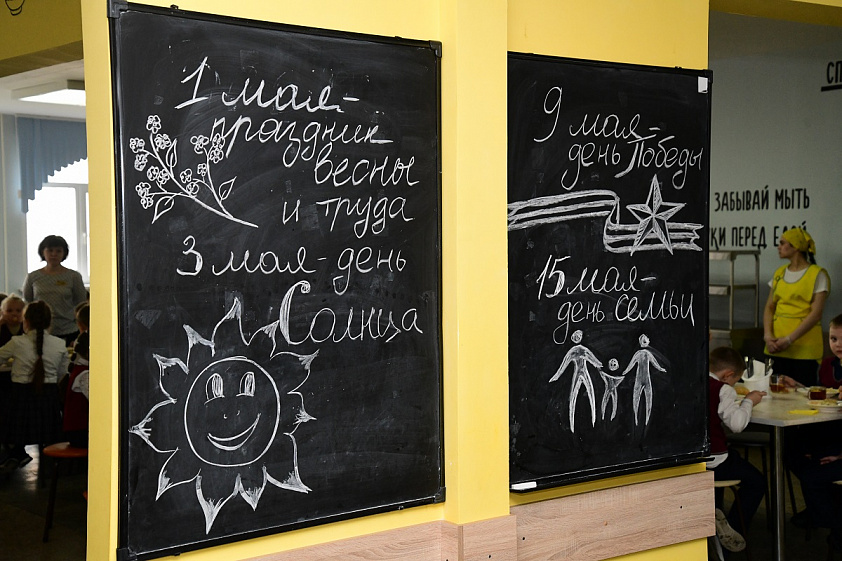 1 мая-
праздник
весны
и труда
3 мая-день
Солнца
9 мая-
день Победы
15 мая-
день семьи
ЗАБЫВАЙ МЫТЬ
ПЕРЕД ЕДОЙ